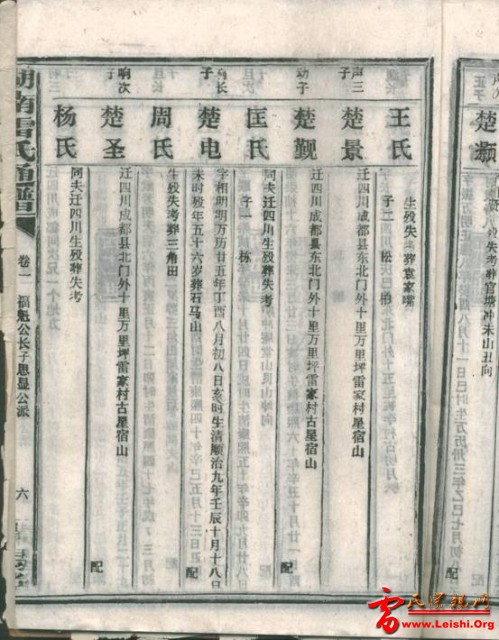 楚灝
失考葬官塘冲未山丑向
王氏
生殁失考葬袁家嘴
子二 松 柏
声三子
楚景
迁四川成都县东北门外十里万里坪雷家村古星宿山
配
动子
楚觐
迁四川成都县东北门外十里万里坪雷家村古星宿山
配
匡氏
同夫迁四川生殁葬失考
子一 栋
长子
楚电
字相明明万历廿五年丁酉八月初八日亥时生清顺治九年壬辰十月十八日
未时殁年五十六岁葬石马山
配
周氏
生殁失考葬三角田
响次子
楚圣
迁四川成都县北门外十里万里坪雷家村古星宿山
配
杨氏
同夫迁四川生殁葬失考
湖南雷氏通譜
卷一
福魁公长子思显公派
六
雷氏宗亲网
www.Leishi.Org